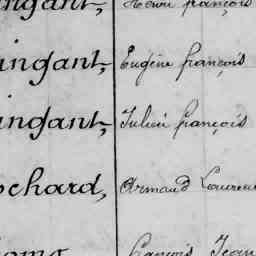 ingant, Henri françois
ingant, Eugène françois
ingant, Julien françois
ochard, Armand Laurent
François Jean